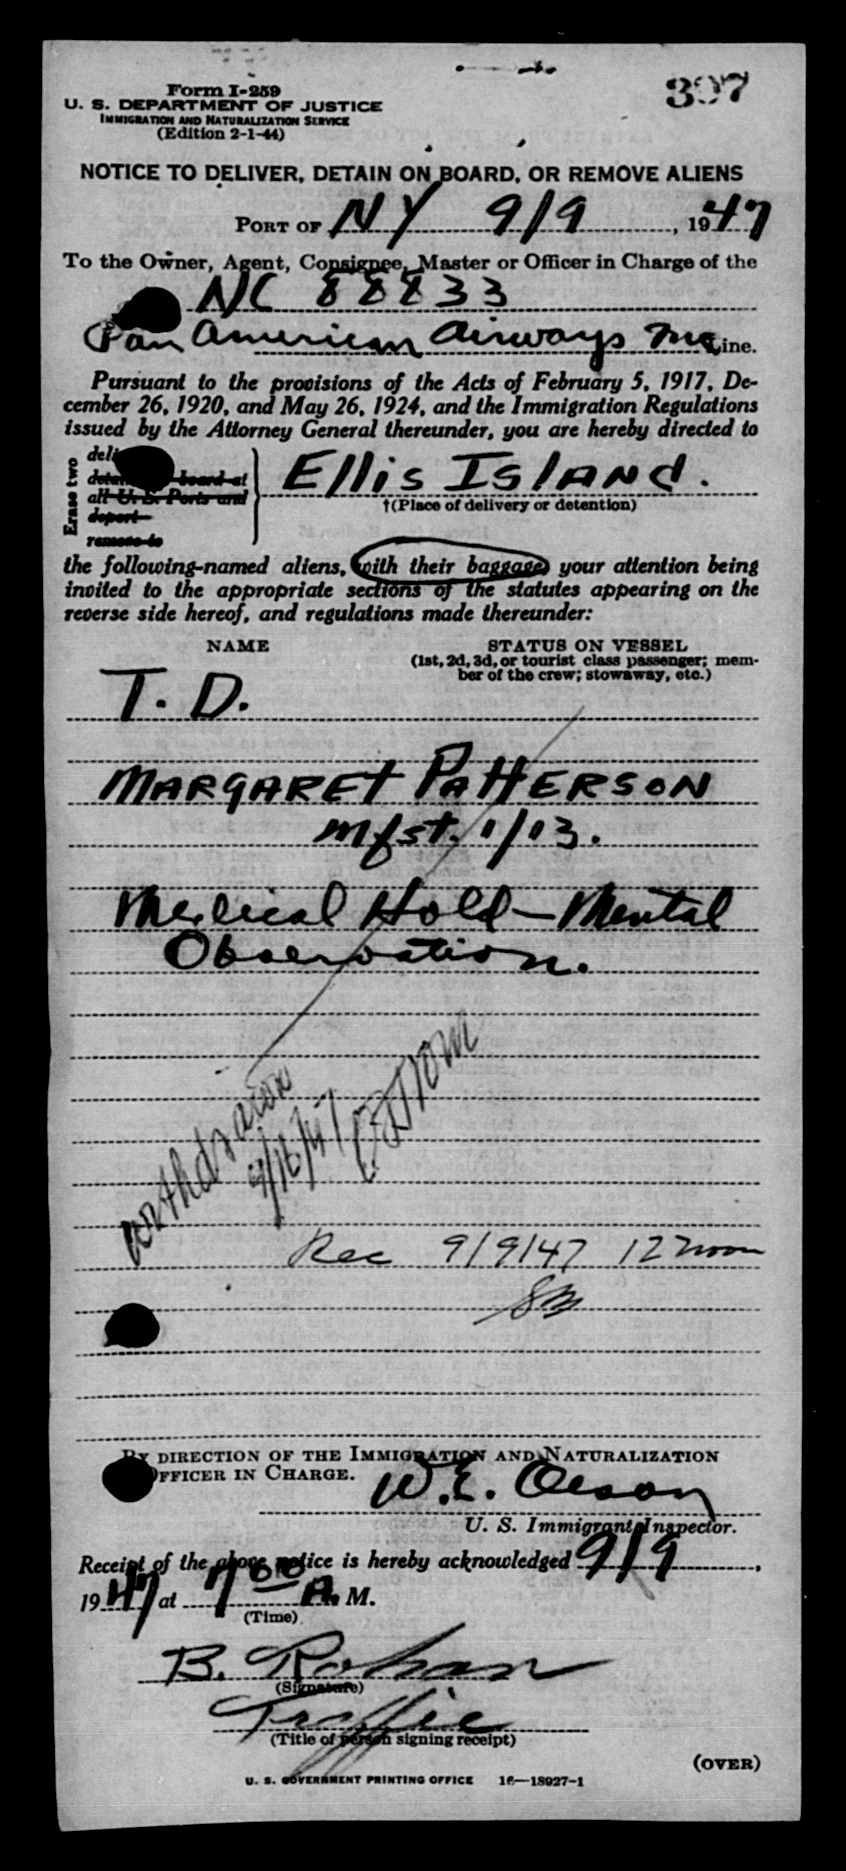 397
Form I-259
U. S. DEPARTMENT OF JUSTICE
IMMIGRATION AND NATURALIZATION SERVICE
(Edition 2-1-44)
NOTICE TO DELIVER, DETAIN ON BOARD, OR REMOVE ALIENS
PORT OF NY 9/9, 1947
To the Owner, Agent, Consignee, Master or Officer in Charge of the
NC 88833
Pan American Airways Inc Line.
Pursuant to the provisions of the Acts of February 5, 1917, De-
cember 26, 1920, and May 26, 1924, and the Immigration Regulations
issued by the Attorney General thereunder, you are hereby directed to
Erase two
deli
board at
all U. S. Ports and
deport
remove to
Ellis Island.
†(Place of delivery or detention)
the following-named aliens, with their baggage, your attention being
invited to the appropriate sections of the statutes appearing on the
reverse side hereof, and regulations made thereunder:
NAME STATUS ON VESSEL
(1st, 2d, 3d, or tourist class passenger; mem-
ber of the crew; stowaway, etc.)
T. D.
MARGARET PATTERSON
Mfst. 1/13.
Medical Hold - Mental
Observation.
withdrawn
9/16/47
Rec 9/9/47 12 noon
BY DIRECTION OF THE IMMIGRATION AND NATURALIZATION
OFFICER IN CHARGE.
W. E. Olson
U. S. Immigrant Inspector.
Receipt of the above notice is hereby acknowledged 9/9,
1947 at 7 00 A. M.
(Time)
B. Rohan
(Signature)
Traffic
(Title of person signing receipt)
(OVER)
U. S. GOVERNMENT PRINTING OFFICE 16—18927-1